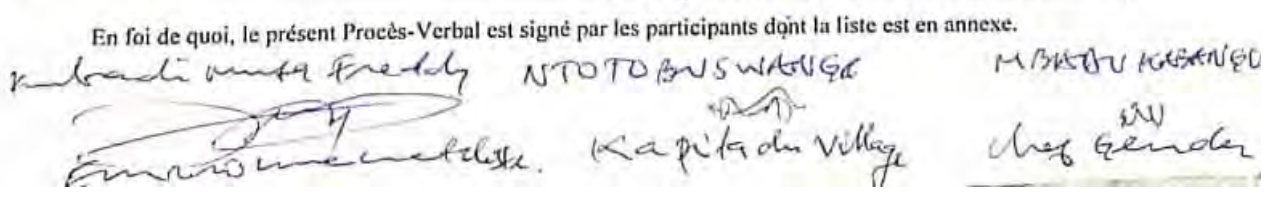 En foi de quoi, le présent Procès-Verbal est signé par les participants dont la liste est en annexe.
Freddy NTOTO BUSWANGE
Environnementaliste. Kapita du Village chef Gender